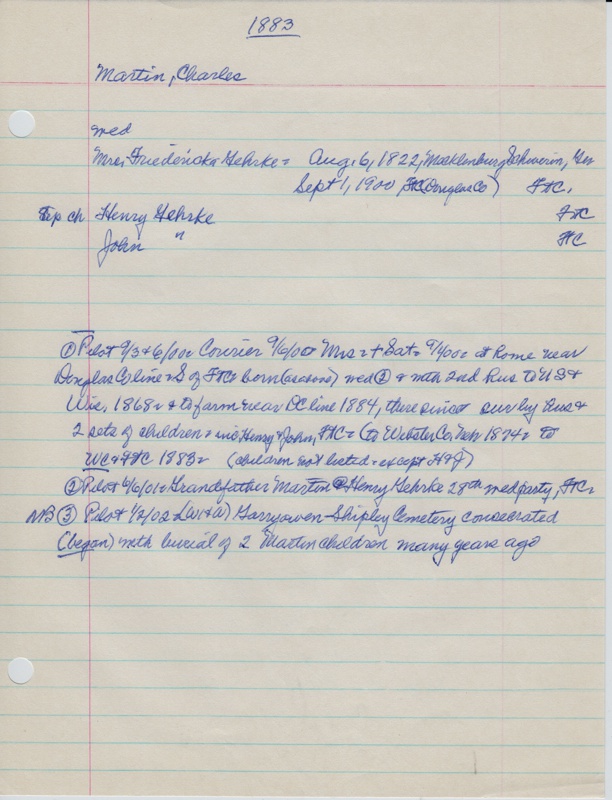 1883
Martin, Charles
med
Mrs, Friedericka Gehrke = Aug, 6, 1822, Mecklenburg Schwerin, Ger
Sept 1, 1900 FtC (Douglas Co) FtC,
Step ch Henry Gehrke FtC
John " FtC
① Pilot 9/3 & 6/00 Courier 9/6/00 Mrs + Sat 9/1/00 at Home near
Douglas Co line & S of FtC born (as above) med ② & with 2nd Hus to US &
Wis, 1868 & to farm near DC line 1884, there since sur by Hus &
2 sets of children inc Henry & John, FtC (to Webster Co, Neb 1874 to
WC & FtC 1883 (children not listed except H & J)
② Pilot 6/6/01 Grandfather Martin @ Henry Gehrke 28th med party, FtC
NB ③ Pilot 1/2/02 Garryowen-Shipley Cemetery consecrated
(began) with burial of 2 Martin children many years ago